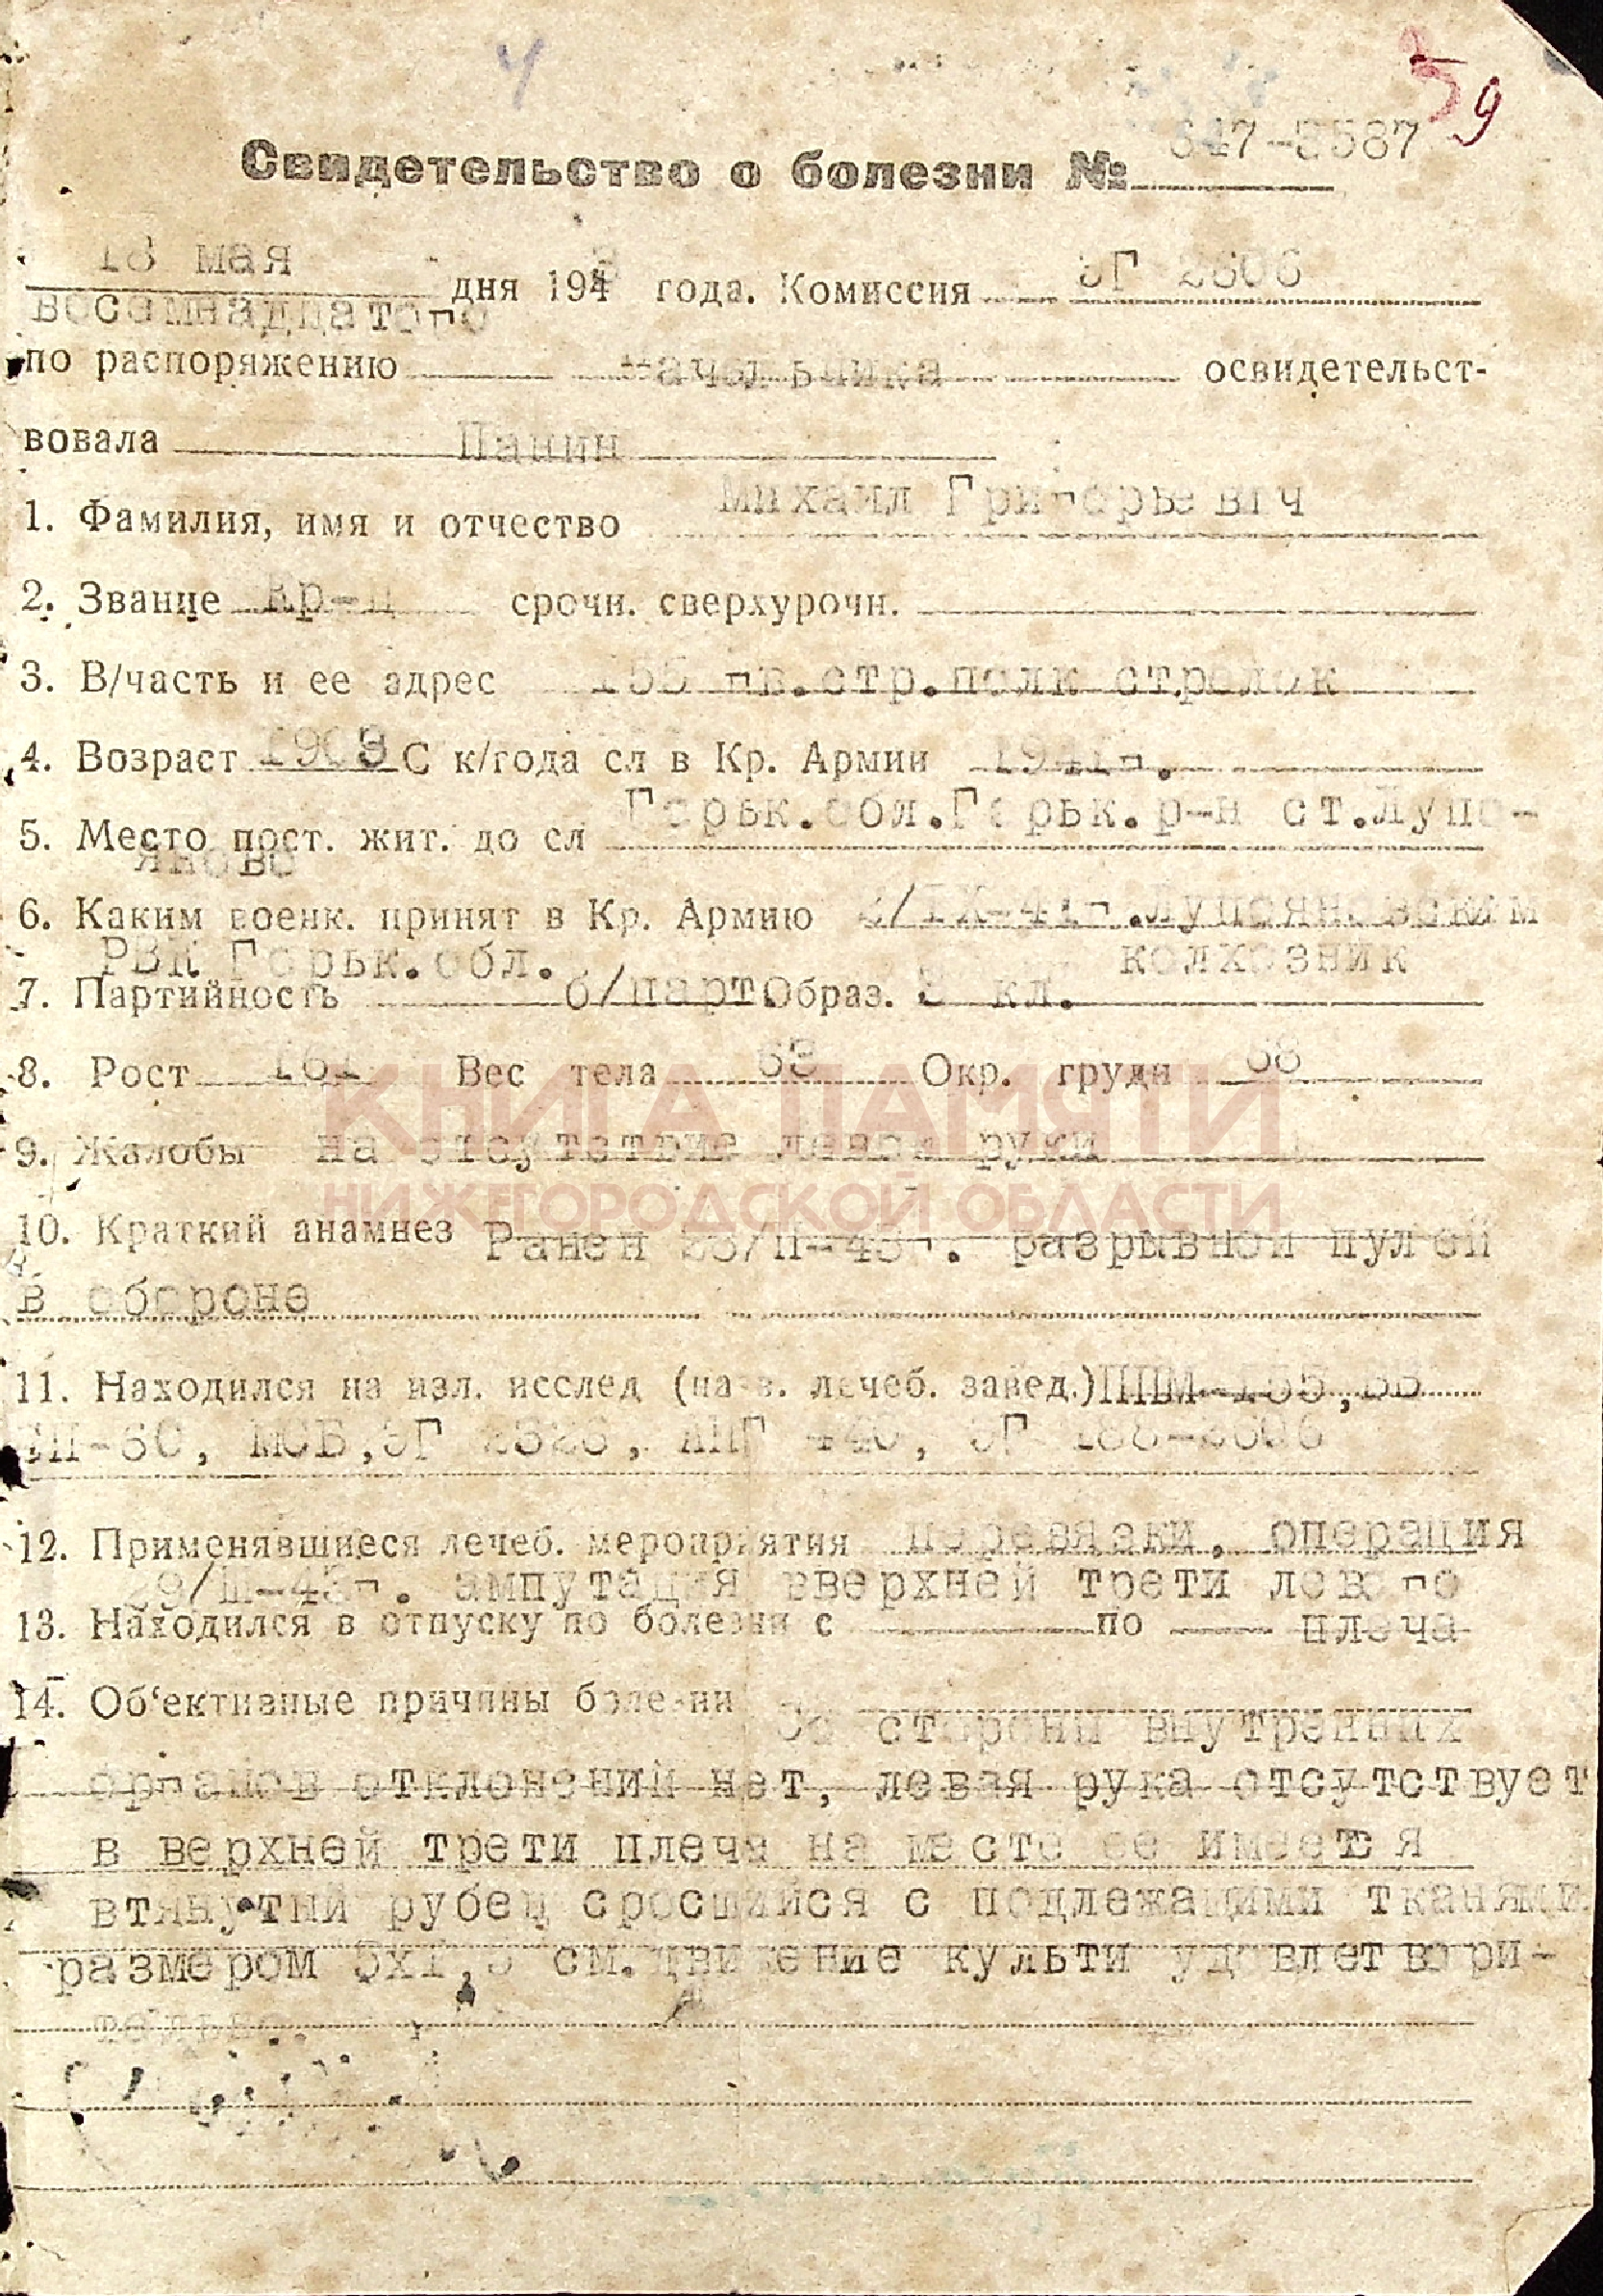 4
59
Свидетельство о болезни № 647-5587
18 мая дня 1943 года. Комиссия ЭГ 2606
восемнадцатого
по распоряжению начальника освидетельст-
вовала Панин
Михаил Григорьевич
1. Фамилия, имя и отчество
2. Звание кр-ц срочн. сверхурочн.
3. В/часть и ее адрес 155 гв.стр.полк стрелок
4. Возраст 1903 С к/года сл в Кр. Армии 1941г.
5. Место пост. жит. до сл Горьк.обл.Горьк.р-н ст.Лупо-
яново
6. Каким военк. принят в Кр. Армию /IX-41г.Лупояновским
РВК Горьк.обл. колхозник
7. Партийность б/парт. Образ. 3 кл.
8. Рост 161 Вес тела 63 Окр. груди 88
КНИГА ПАМЯТИ
9. Жалобы на отсутствие левой руки
НИЖЕГОРОДСКОЙ ОБЛАСТИ
10. Краткий анамнез Ранен 23/II-43г. разрывной пулей
в обороне
11. Находился на изл. исслед (назв. лечеб. завед.) ППМ-155,
МСБ, ЭГ 2326, ППГ 440, ЭГ 188-2606
12. Применявшиеся лечеб. мероприятия перевязки, операция
29/III-43г. ампутация вверхней трети левого
13. Находился в отпуску по болезни с по плеча
14. Об'ективные причины болезни Со стороны внутренних
органов отклонений нет, левая рука отсутствует
в верхней трети плеча на месте ее имеется
втянутый рубец сросшийся с подлежащими тканями
размером 5х1,5 см. движение культи удовлетвори-
тельное.